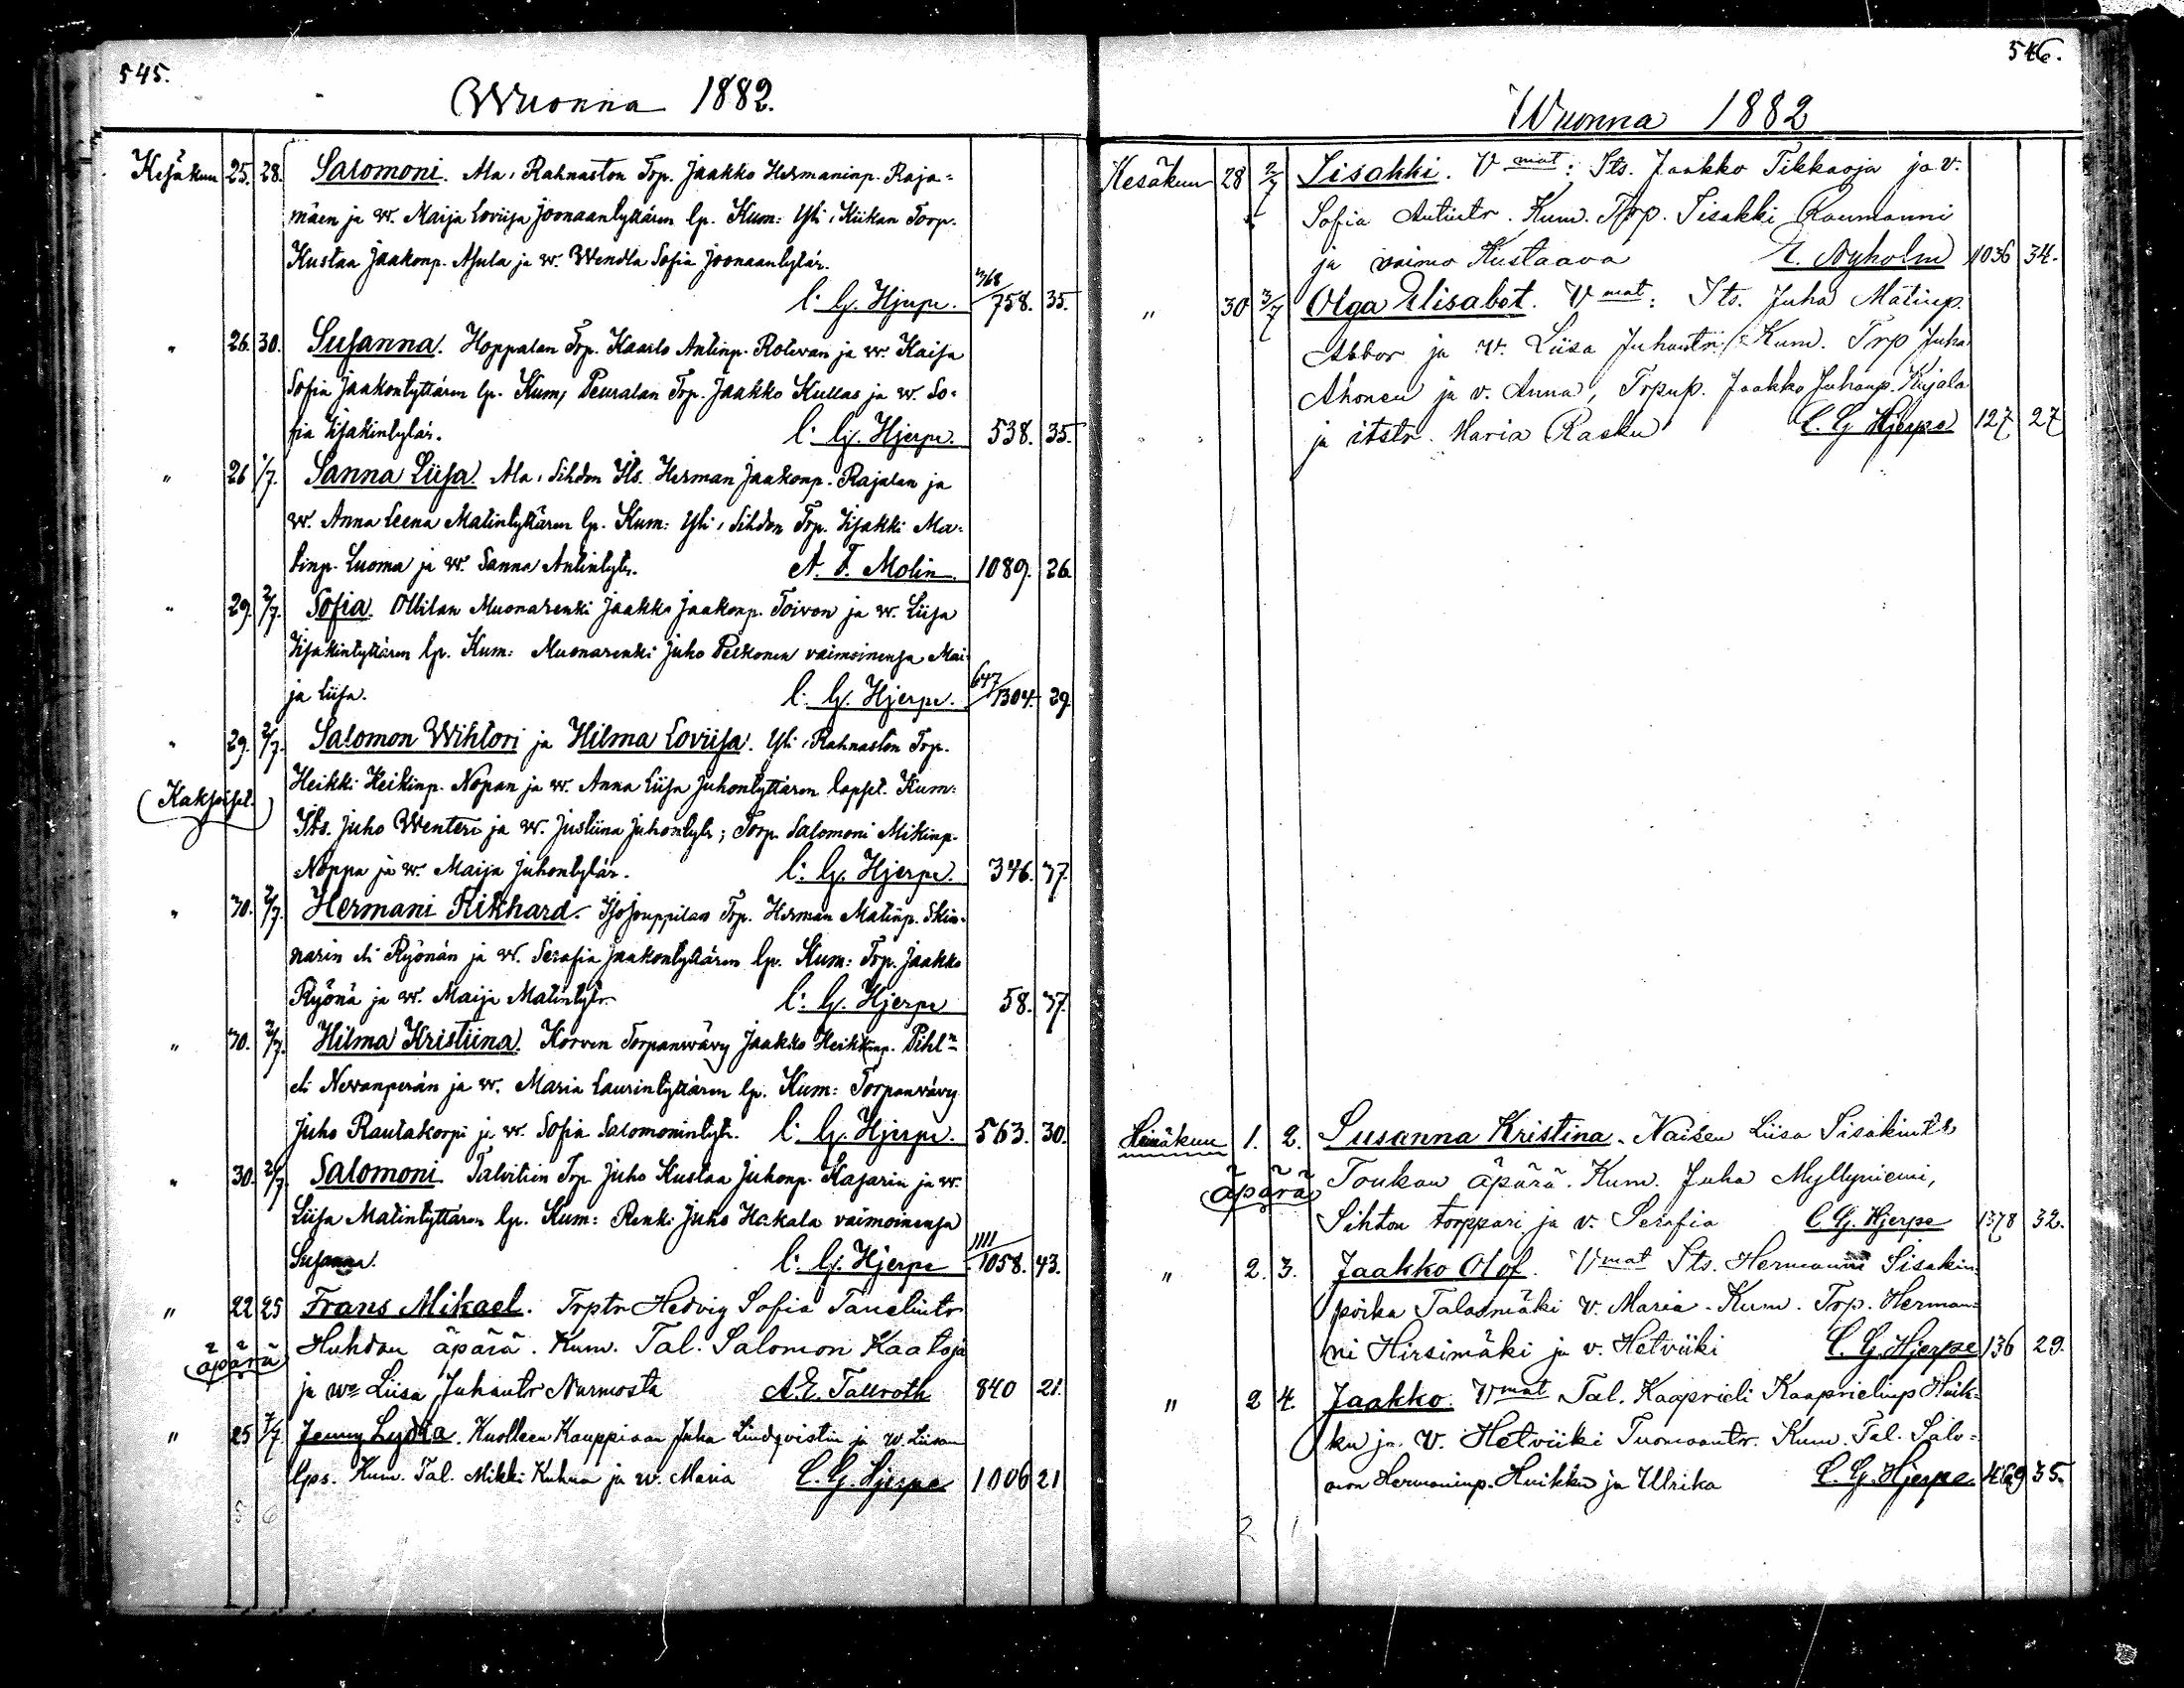 545.
Wuonna 1882.
Kesäkuu 25. 28. Salomoni. Ala, Rahnaston Torp. Jaakko Hermaninp. Raja=
mäen ja w. Maija Loviisa Joonaantyttären lp. Kum: Yli, Kiikan Torp.
Kustaa Jaakonp. Asula ja w. Wendla Sofia Joonaantytär.
C. G. Hjerpe. 368/758. 35.
" 26. 30. Susanna. Hoppalan Torp. Kaarlo Antinp. Rotwan ja w. Kaisa
Sofia Jaakontyttären lp. Kum, Peuralan Torp. Jaakko Kullas ja w. So=
fia Iisakintytär. C. G. Hjerpe. 538. 35.
" 26 1/7. Sanna Liisa. Ala, Sihdon Its. Herman Jaakonp. Rajalan ja
w. Anna Leena Matintyttären lp. Kum: Yli, Sihdon Torp. Iisakki Ma=
tinp. Luoma ja w. Sanna Antintytr. A. F. Molin. 1089. 26.
" 29. 2/7. Sofia. Ollilan Muonarenki Jaakko Jaakonp. Toivon ja w. Liisa
Iisakintyttären lp. Kum: Muonarenki Juho Peskonen vaimoinensa Mai=
ja Liisa. C. G. Hjerpe. 647/1304. 29.
" 29. 2/7. Salomon Wihtori ja Hilma Loviisa. Yli, Rahnaston Torp.
(Kaksoiset.) Heikki Heikinp. Nopan ja w. Anna Liisa Juhontyttären lapset. Kum:
Its. Juho Wenteri ja w. Justiina Juhontytr; Torp. Salomoni Mikinp.
Noppa ja w. Maija Juhontytär. C. G. Hjerpe. 346. 37.
" 30. 2/7. Hermani Rikhard. Isojouppilan Torp. Herman Matinp. Skin=
narin eli Ryönän ja w. Serafia Jaakontyttären lp. Kum: Torp. Jaakko
Ryönä ja w. Maija Matintytr. C. G. Hjerpe 58. 37.
" 30. 2/7. Hilma Kristiina. Korven Torpanvävy Jaakko Heikkinp. Pihl
eli Nevanperän ja w. Maria Laurintyttären lp. Kum: Torpanvävy
Juho Rautakorpi ja w. Sofia Salomonintytr. C. G. Hjerpe. 563. 30.
" 30. 2/7. Salomoni. Talvitien Torp. Juho Kustaa Juhonp. Kasarin ja w.
Liisa Matintyttären lp. Kum: Renki Juho Hakala vaimoinensa
Susanna. C. G. Hjerpe 1111/1058. 43.
" 22 25 Frans Mikael. Trptr Hedvig Sofia Tanelintr
(äpärä) Huhdan äpärä. Kum. Tal. Salomon Kaatoja
ja wo Liisa Juhantr Nurmosta A. E. Tallroth 840 21.
" 25 7/7. Jenny Lydia. Kuolleen Kauppiaan Juha Lindqvistin ja w. Liisan
lps. Kum. Tal. Mikki Kuhna ja w. Maria C. G. Hjerpe 1006 21
546.
Wuonna 1882
Kesäkuu 28 2/7 Iisakki. Vmat: Its. Jaakko Tikkaoja ja v.
Sofia Antintr. Kum. Trp. Iisakki Raumanni
ja vaimo Kustaava Nyholm 1036 34.
" 30 3/7 Olga Elisabet. Vmat: Its. Juha Matinp.
Abbor ja v. Liisa Juhantr. Kum. Trp Juha
Ahonen ja v. Anna, Trpnp. Jaakko Juhanp. Kujala
ja itstr. Maria Rasku C. G. Hjerpe 127 27
Heinäkuu 1. 2. Susanna Kristina. Naisen Liisa Iisakintr
(äpärä) Toukan äpärä. Kum. Juha Myllyniemi,
Sihton torppari ja v. Serafia C. G. Hjerpe 1378 32.
" 2. 3. Jaakko Olof. Vmat Its. Hermanni Iisakin
poika Talasmäki v. Maria. Kum. Trp. Herman=
ni Hirsimäki ja v. Hetviiki C. G. Hjerpe 136 29.
" 2 4. Jaakko. Vmat Tal. Kaaprieli Kaaprielinp Huik=
ku ja v. Hetviiki Tuomaantr. Kum. Tal. Salo=
mon Hermaninp. Huikku ja Ulrika C. G. Hjerpe. 469 35.